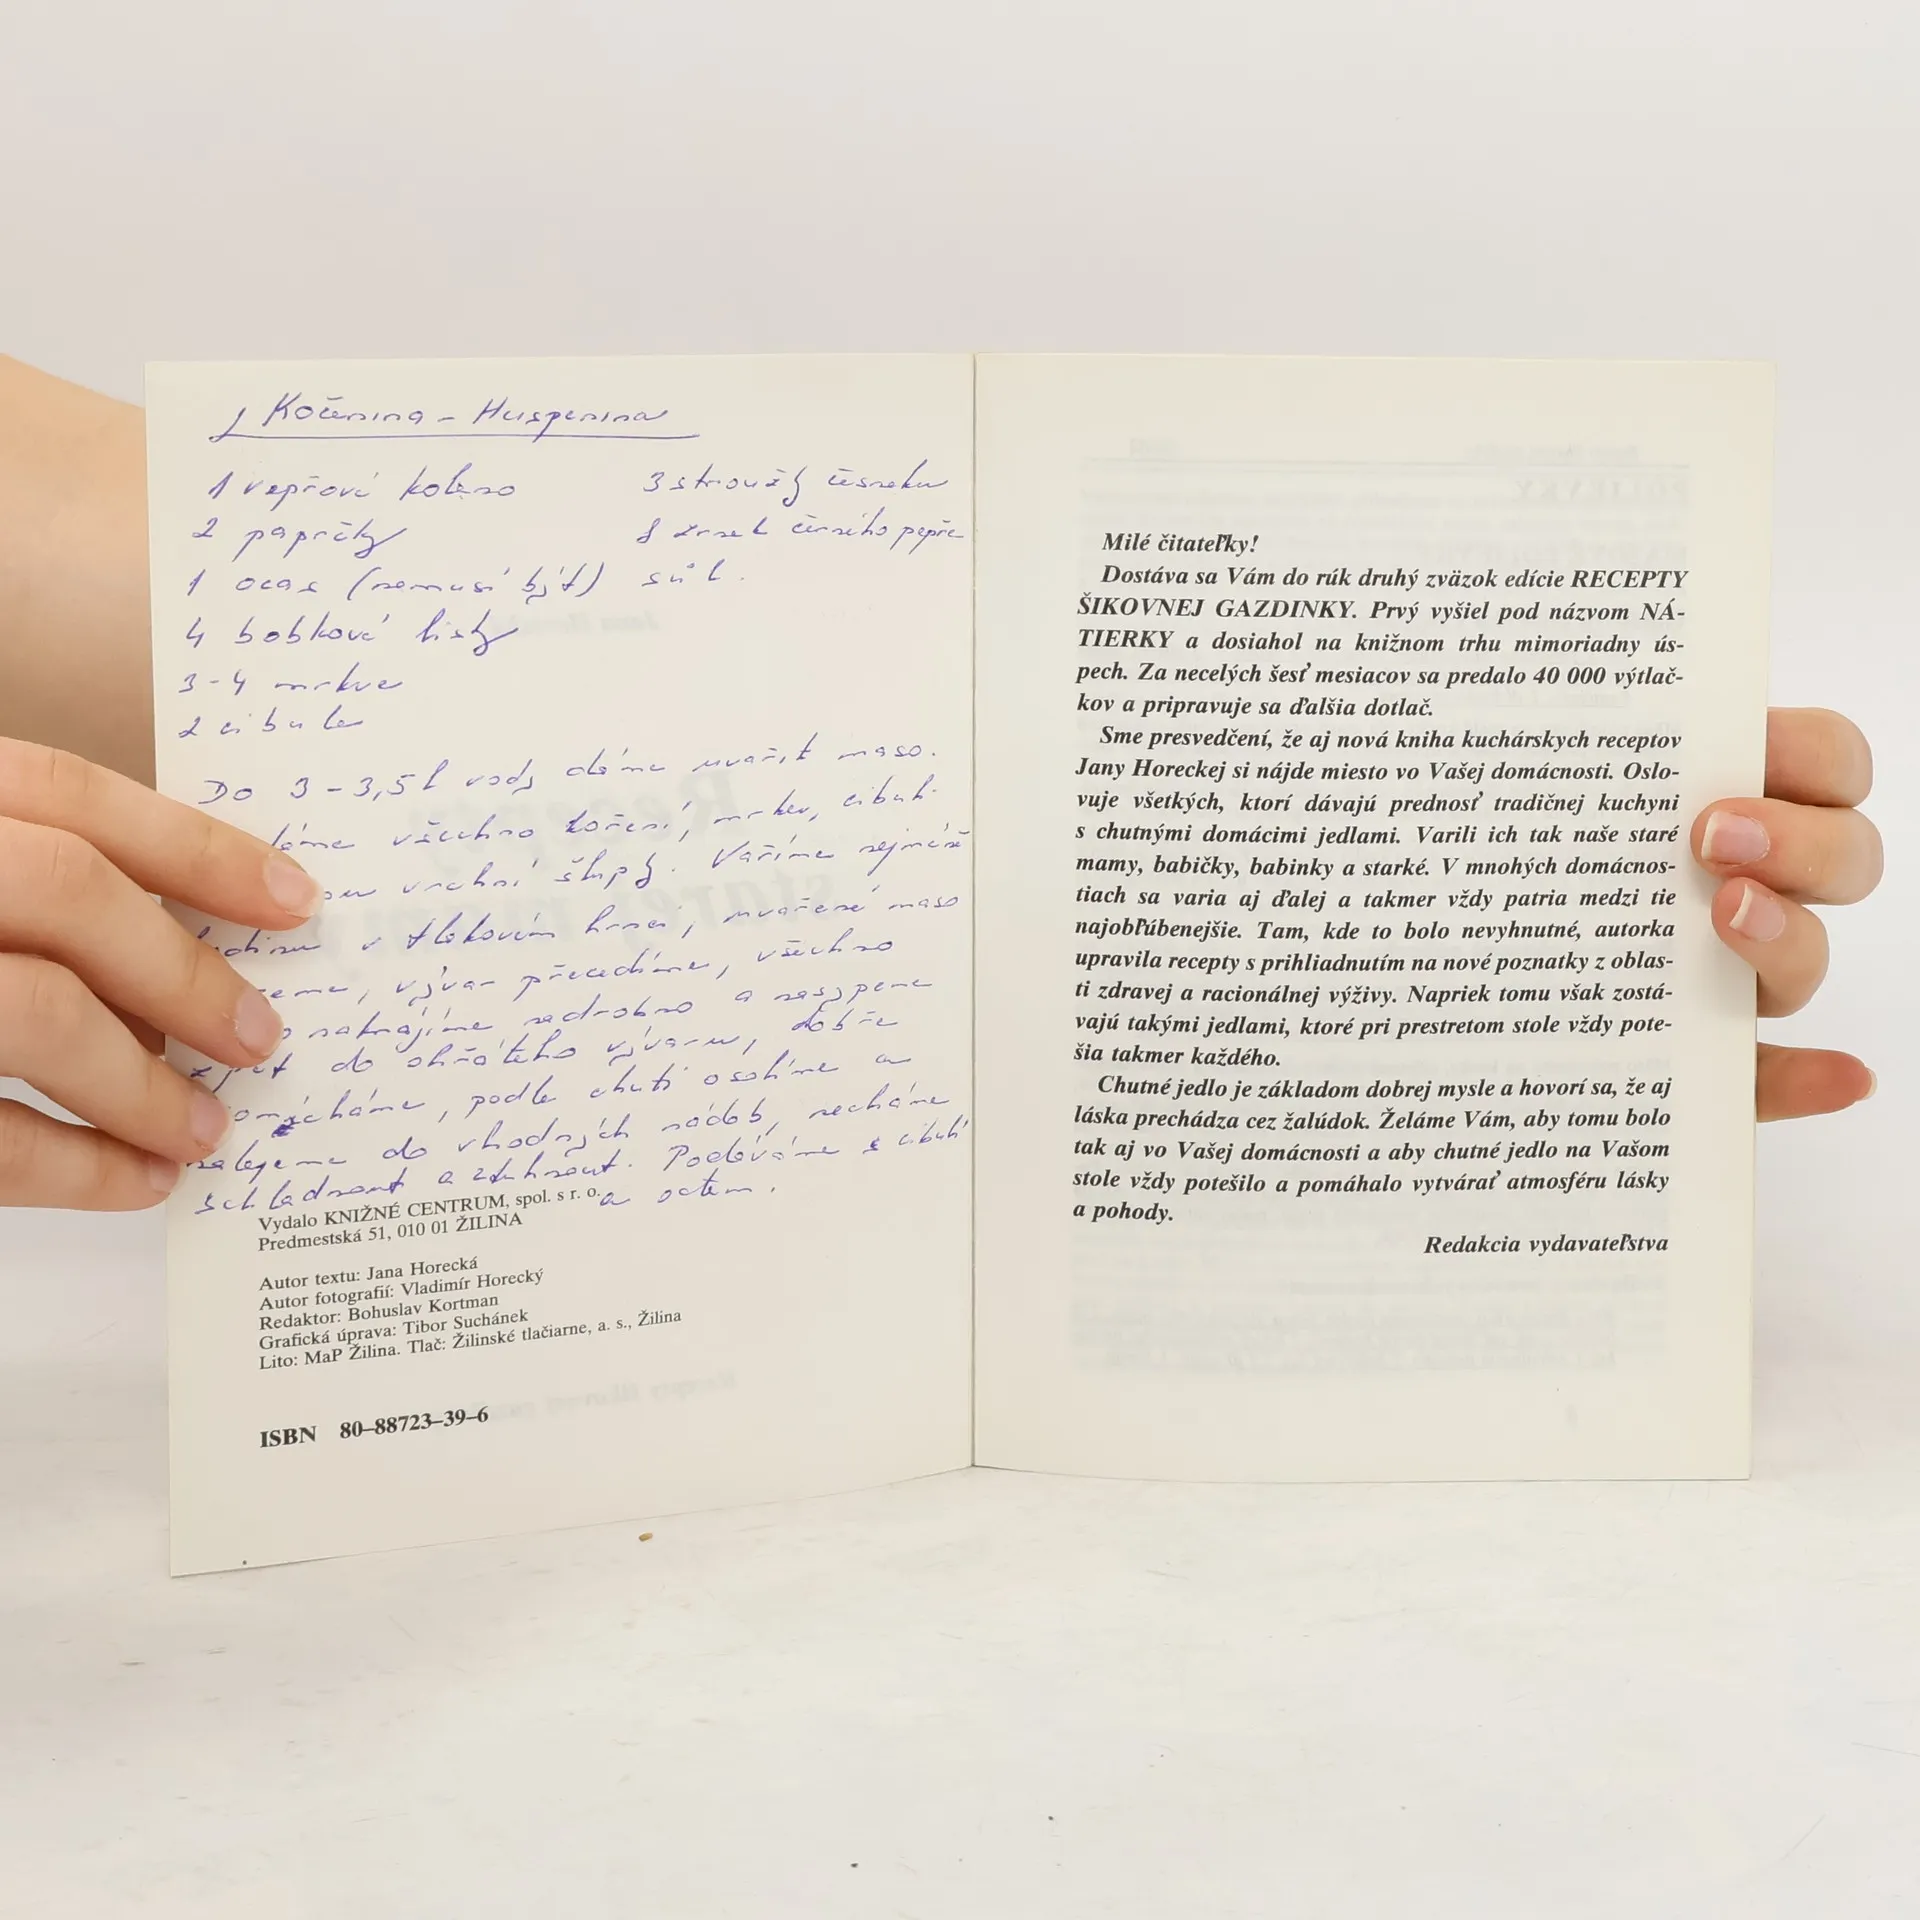 Kočenina - Huspenina
1 vepřové koleno
2 papričky
1 ocas (nemusí být)
4 bobkové listy
3-4 mrkve
2 cibule
3 stroužky česneku
8 zrnek černého pepře
sůl.
Do 3-3,5 l vody dáme uvařit maso.
dáme všechno koření, mrkev, cibuli
vrchní šlupky. Vaříme nejméně
hodinu v tlakovém hrnci, uvařené maso
vývar přecedíme, všechno
nakrájíme nadrobno a nasypeme
zpět do ohřátého vývaru, dobře
promícháme, podle chuti osolíme a
nalejeme do vhodných nádob, necháme
schladnout a ztuhnout. Podáváme s cibulí
a octem.
Vydalo KNIŽNÉ CENTRUM, spol. s r. o.
Predmestská 51, 010 01 ŽILINA
Autor textu: Jana Horecká
Autor fotografií: Vladimír Horecký
Redaktor: Bohuslav Kortman
Grafická úprava: Tibor Suchánek
Lito: MaP Žilina. Tlač: Žilinské tlačiarne, a. s., Žilina
ISBN 80–88723–39–6
Milé čitateľky!
Dostáva sa Vám do rúk druhý zväzok edície RECEPTY
ŠIKOVNEJ GAZDINKY. Prvý vyšiel pod názvom NÁ-
TIERKY a dosiahol na knižnom trhu mimoriadny ús-
pech. Za necelých šesť mesiacov sa predalo 40 000 výtlač-
kov a pripravuje sa ďalšia dotlač.
Sme presvedčení, že aj nová kniha kuchárskych receptov
Jany Horeckej si nájde miesto vo Vašej domácnosti. Oslo-
vuje všetkých, ktorí dávajú prednosť tradičnej kuchyni
s chutnými domácimi jedlami. Varili ich tak naše staré
mamy, babičky, babinky a starké. V mnohých domácnos-
tiach sa varia aj ďalej a takmer vždy patria medzi tie
najobľúbenejšie. Tam, kde to bolo nevyhnutné, autorka
upravila recepty s prihliadnutím na nové poznatky z oblas-
ti zdravej a racionálnej výživy. Napriek tomu však zostá-
vajú takými jedlami, ktoré pri prestretom stole vždy pote-
šia takmer každého.
Chutné jedlo je základom dobrej mysle a hovorí sa, že aj
láska prechádza cez žalúdok. Želáme Vám, aby tomu bolo
tak aj vo Vašej domácnosti a aby chutné jedlo na Vašom
stole vždy potešilo a pomáhalo vytvárať atmosféru lásky
a pohody.
Redakcia vydavateľstva